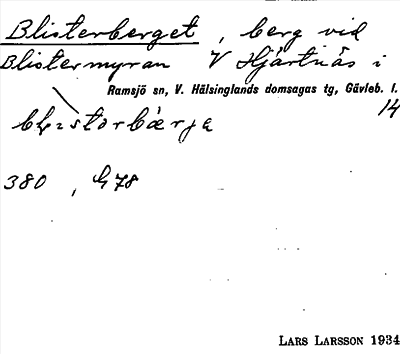 Blisterberget, berg vid
Blistermyran V Hjärtnäs i
Ramsjö sn, V. Hälsinglands domsagas tg, Gävleb. l.
14
380,
LARS LARSSON 1934